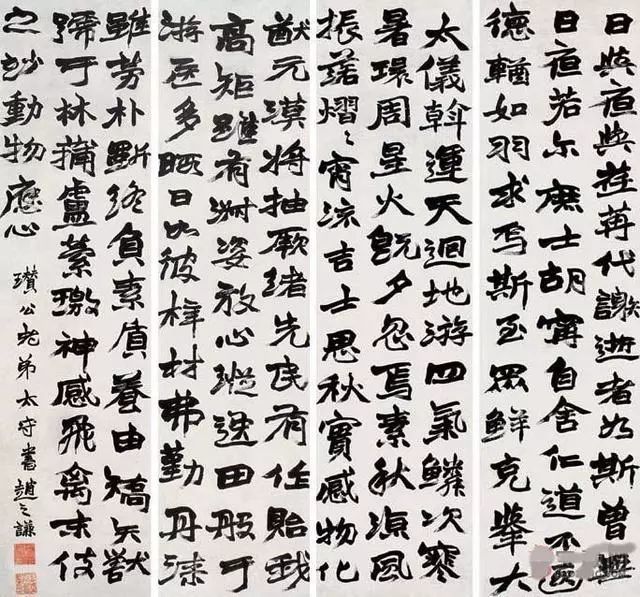 日與夜與荏苒代謝逝者如斯曾無
日夜若尔庶士胡寧自舍仁道不遐
德輶如羽求焉斯至眾鮮克舉大
太儀斡運天迴地游四氣鱗次寒
暑環周星火既夕忽焉素秋涼風
振落熠〻宵流吉士思秋實感物化
猷元漠將抽厥緒先民有任貽我
高矩雖有淑姿放心縱逸田般于
游居多暇日如彼梓材弗勤丹漆
雖勞朴斲終負素質養由矯矢獸
號于林蒲盧縈繳神感飛禽末伎
之妙動物應心
瓚公老弟太守書趙之謙